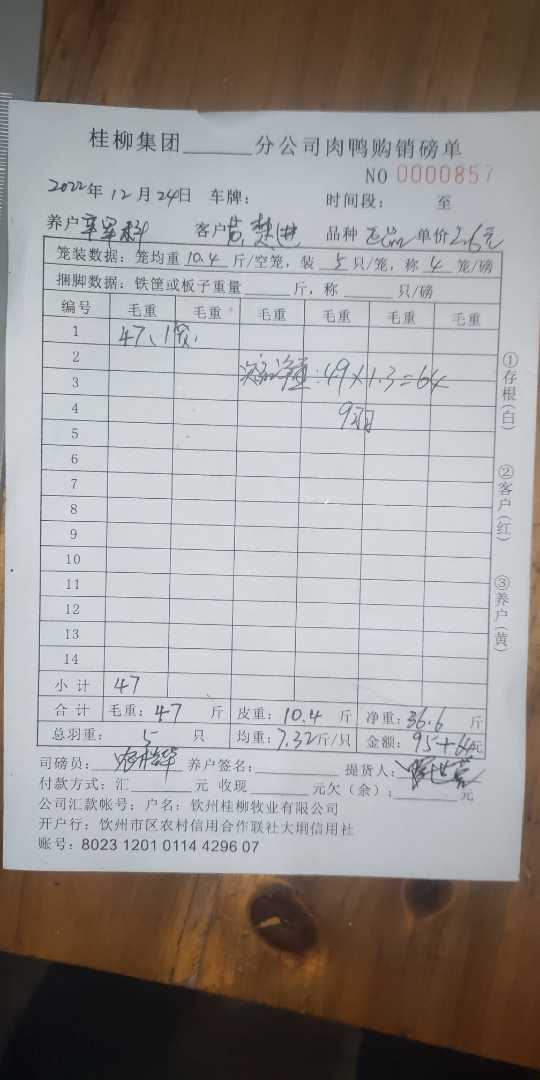 桂柳集团______分公司肉鸭购销磅单
NO 0000857
2022年 12月 24日 车牌： 时间段： 至
养户 客户 品种 单价 2.6元
笼装数据：笼均重 10.4 斤/空笼，装 5 只/笼，称 4 笼/磅
捆脚数据：铁筐或板子重量______斤，称______只/磅
编号 毛重 毛重 毛重 毛重 毛重 毛重
1 47、1
2
3 :49×1.3=64
4
5
6
7
8
9
10
11
12
13
14
小计 47
合计 毛重：47 斤 皮重：10.4 斤 净重：36.6 斤
总羽重： 5 只 均重：7.32斤/只 金额：95+64元
司磅员： 养户签名：______ 提货人：
付款方式：汇______元 收现______元欠（余）：______元
公司汇款帐号：户名：钦州桂柳牧业有限公司
开户行：钦州市区农村信用合作联社大垌信用社
账号：8023 1201 0114 4296 07
①存根（白）
②客户（红）
③养户（黄）